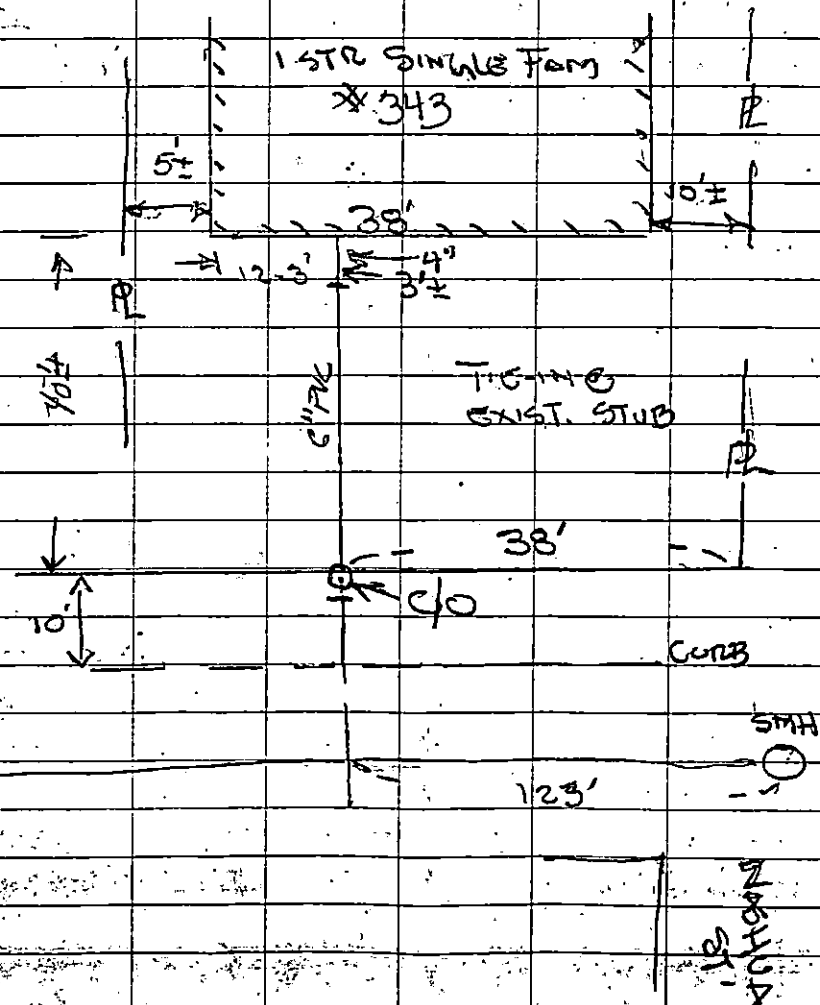 1 STR SINGLE FAM
# 343
PL
5'±
10'±
38'
12-3'
4"
3'±
PL
40'±
6" PVC
TIE-IN @
EXIST. STUB
PL
38'
C/O
10'
CURB
SMH
123'
NASHUA
ST.